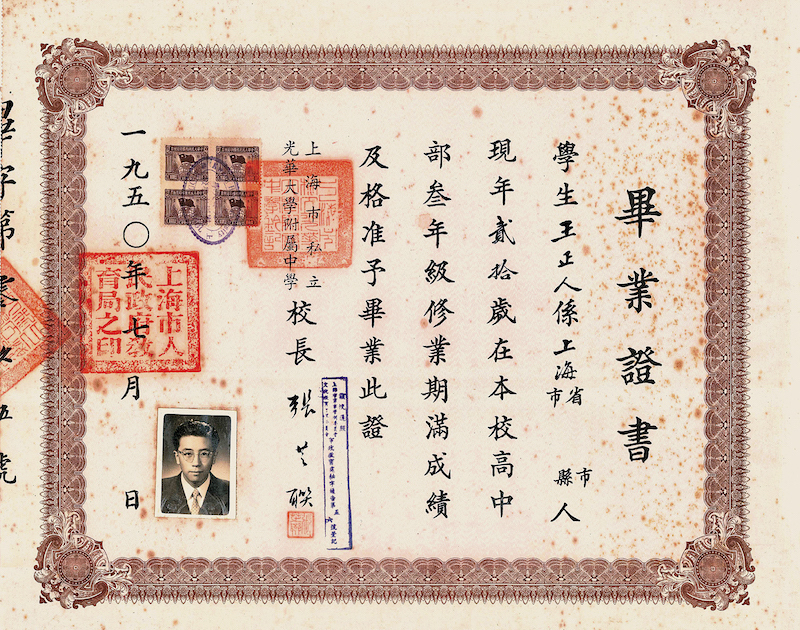 畢業證書
學生王正人係上海省市 市縣人
現年貳拾歲在本校高中
部叁年級修業期滿成績
及格准予畢業此證
上海市私立
光華大學附屬中學
校長 張芝聯
一九五〇年七月 日
上海市人民政府教育局之印
畢字第零 五號